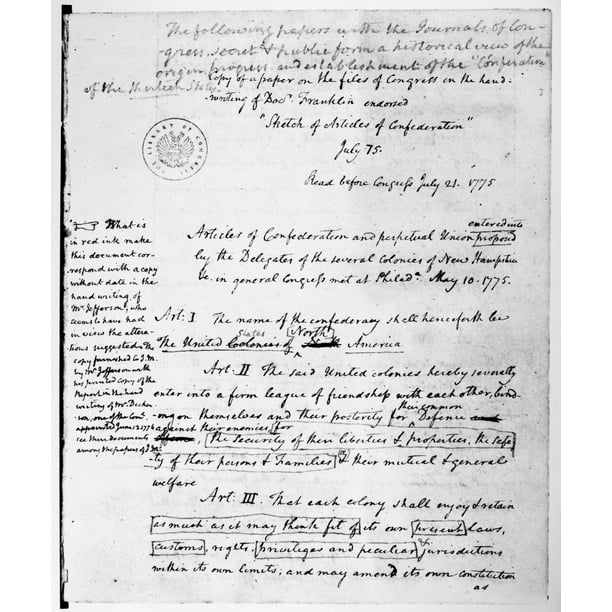 The following papers with the Journals of Con-
gress, secret & public form a historical view of the
origin, progress and establishment of the "Confederation"
of the thirteen States
Copy of a paper on the files of Congress in the hand-
writing of Doc.r Franklin endorsed
"Sketch of Articles of Confederation"
July 75.
Read before Congress July 21. 1775
THE LIBRARY OF CONGRESS
What is
in red ink make
this document cor-
respond with a copy
without date in the
hand writing of
Mr. Jefferson, who
seems to have had
in view the altera-
tions suggested in the
copy furnished to J.M.
by Mr. Jefferson with
his printed copy of the
Report in the hand
writing of Mr. Dickin-
son, one of the Com.
appointed June 12 1776
see these documents
among the papers of J.M.
entered into
Articles of Confederation and perpetual Union proposed
by the Delegates of the several Colonies of New Hampshire
&c. in general Congress met at Philad.a May 10. 1775.
Art: I The name of the confederacy shall henceforth be
States North
The United Colonies of America
Art: II The said United colonies hereby severally
enter into a firm league of friendship with each other, bind-
ing on themselves and their posterity for their common Defence and
against their enemies for
the security of their liberties & properties, the safe-
ty of their persons & Families & their mutual & general
welfare
Art: III That each colony shall enjoy & retain
as much as it may think fit of its own present laws,
customs, rights, privileges and peculiar jurisdictions
within its own limits; and may amend its own constitution
as